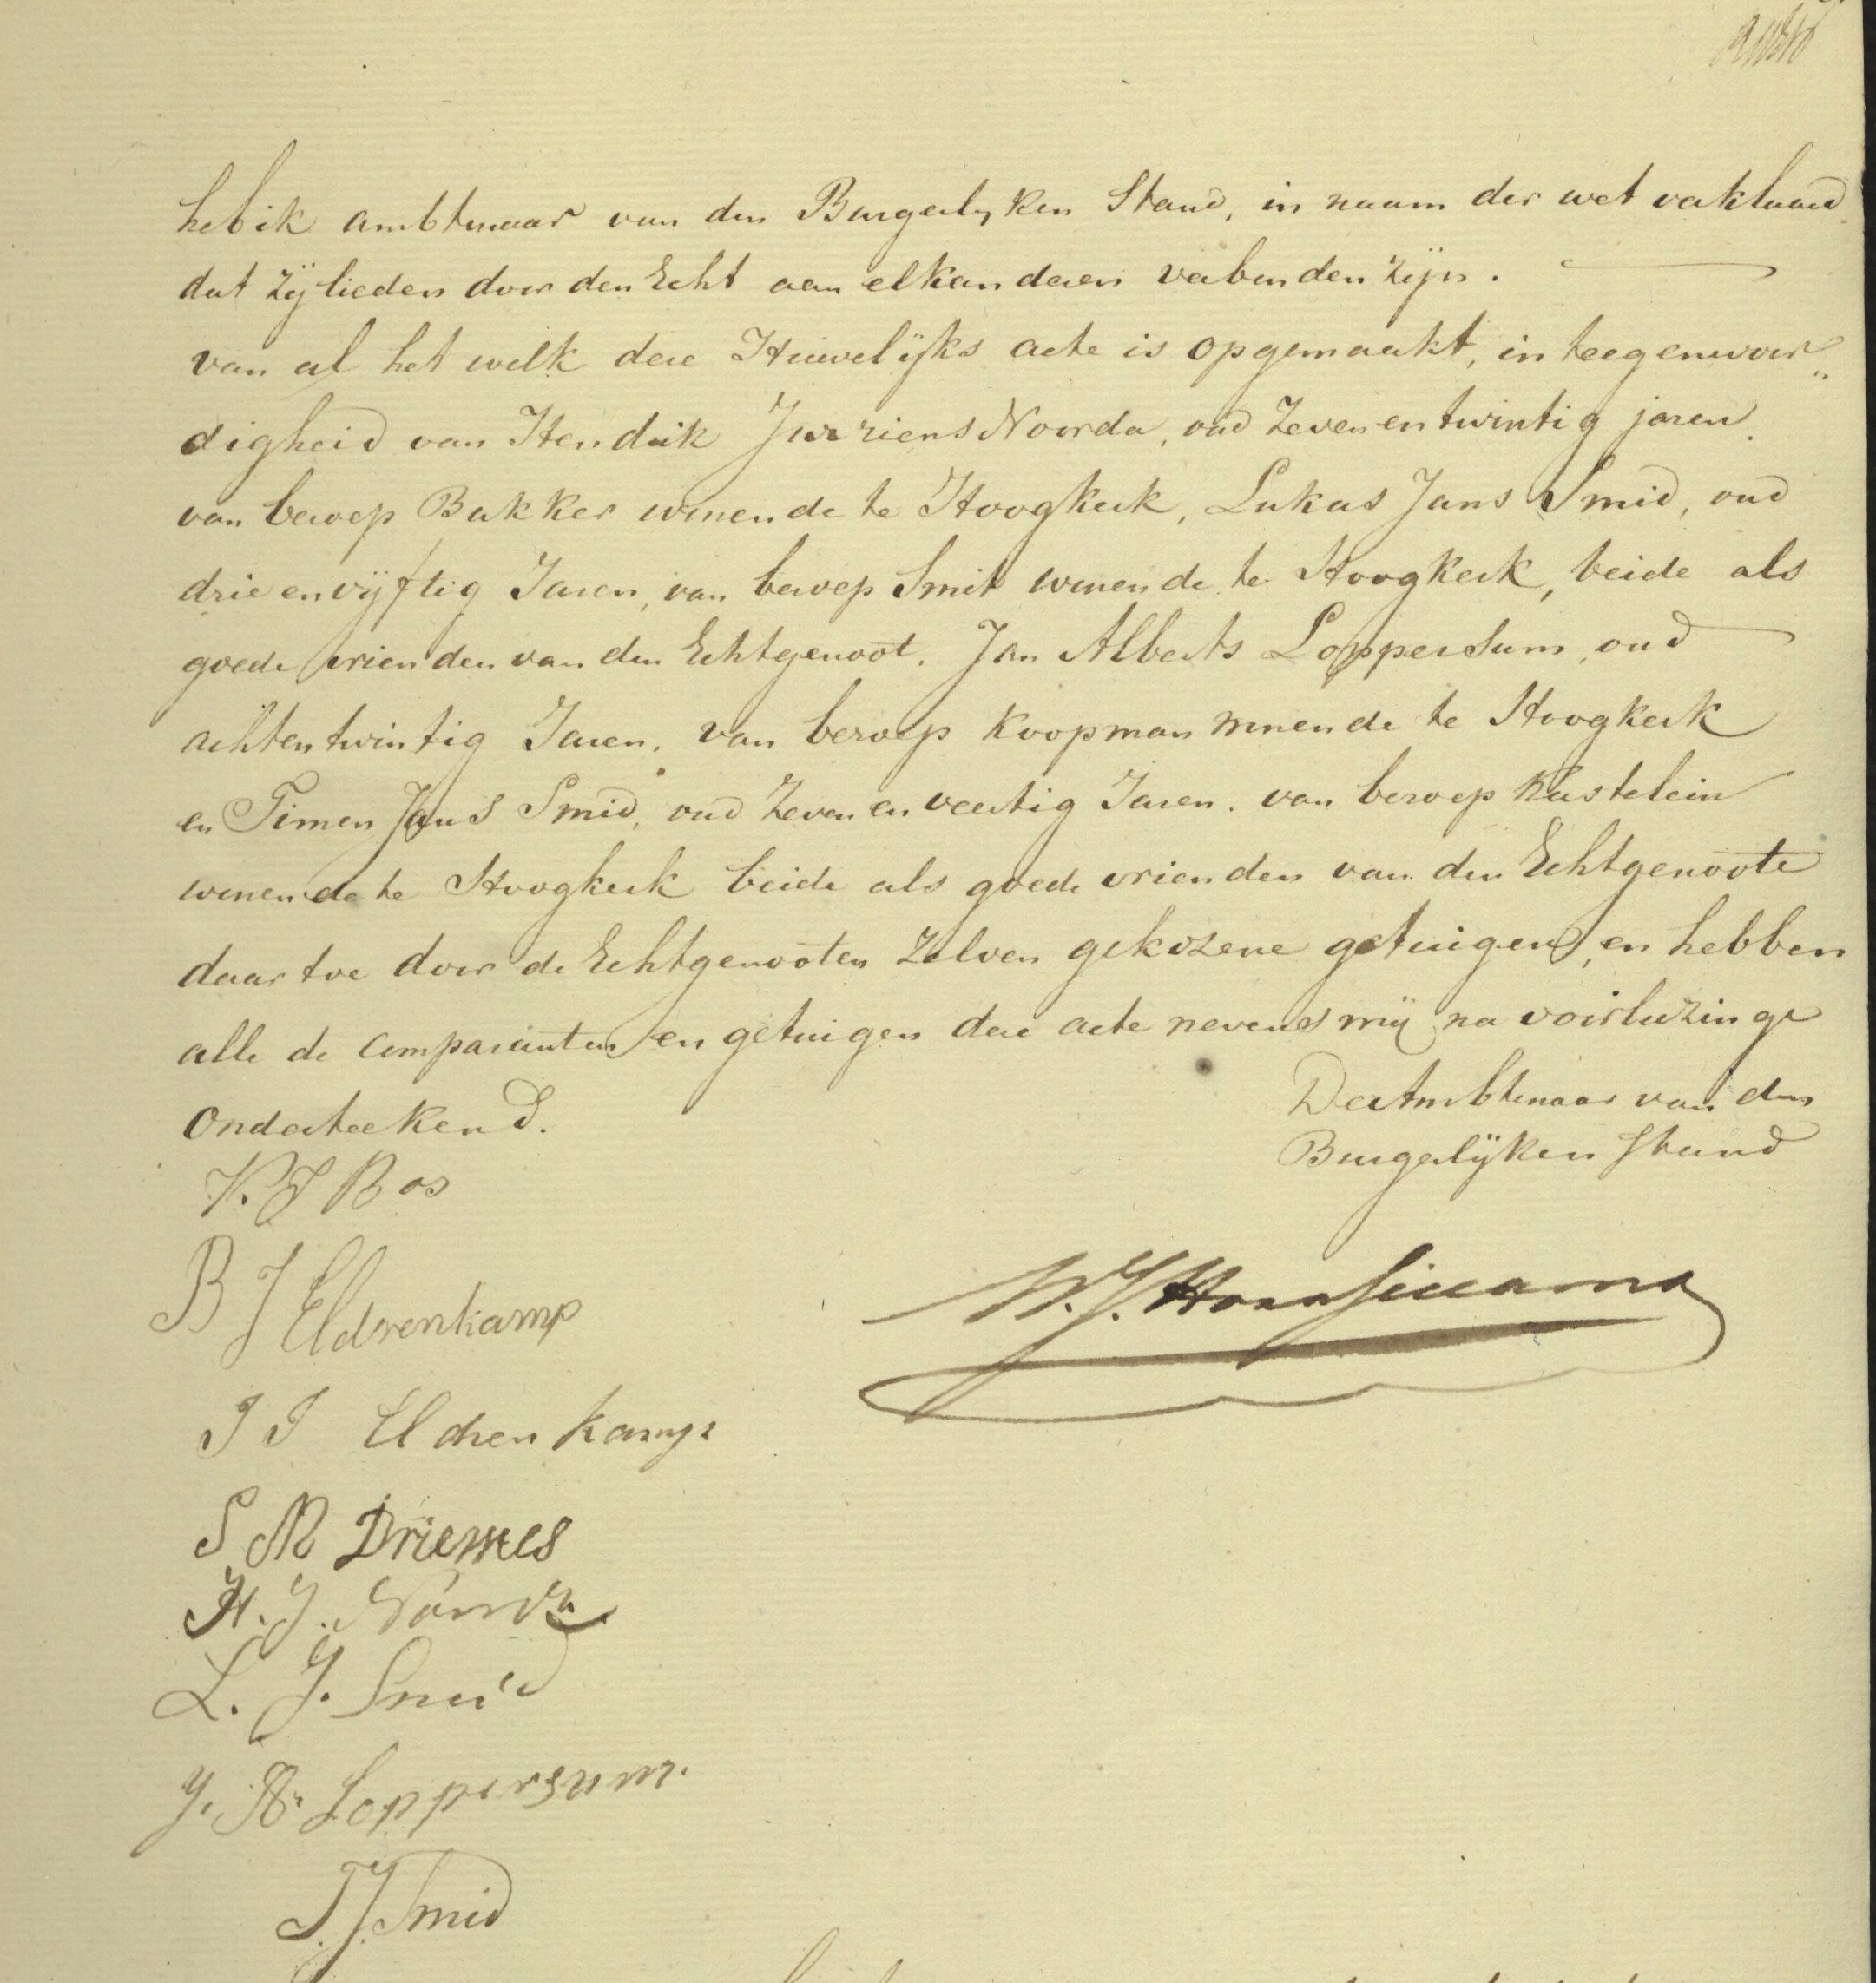 heb ik ambtenaar van den Burgerlyken Stand, in naam der wet verklaard
dat zij lieden door den Echt aan elkanderen verbonden zijn.
van al het welk deze Huwelijks acte is opgemaakt, in teegenwoor„
digheid van Hendrik Jurriens Noorda, oud Zeven en twintig jaren,
van beroep Bakker wonende te Hoogkerk, Lukas Jans Smid, oud
drie en vijftig Jaren, van beroep Smit wonende te Hoogkerk, beide als
goede vrienden van den Echtgenoot. Jan Alberts Loppersum, oud
achtentwintig Jaren, van beroep Koopman wonende te Hoogkerk
en Timen Jans Smid, oud Zeven en veertig Jaren. van beroep Kastelein
wonende te Hoogkerk beide als goede vrienden van den Echtgenoote
daar toe door de Echtgenooten Zelven gekozene getuigen, en hebben
alle de Comparanten en getuigen deze acte nevens mij na voorleezinge
Onderteekend.
Der Ambtenaar van den
Burgerlijken Stand
K. J Bos
B J Eldrenkamp
J J Eldrenkamp
S M Driewes
H. J. Noorda
L. J. Smid
J. A. Loppersum.
T. J. Smid